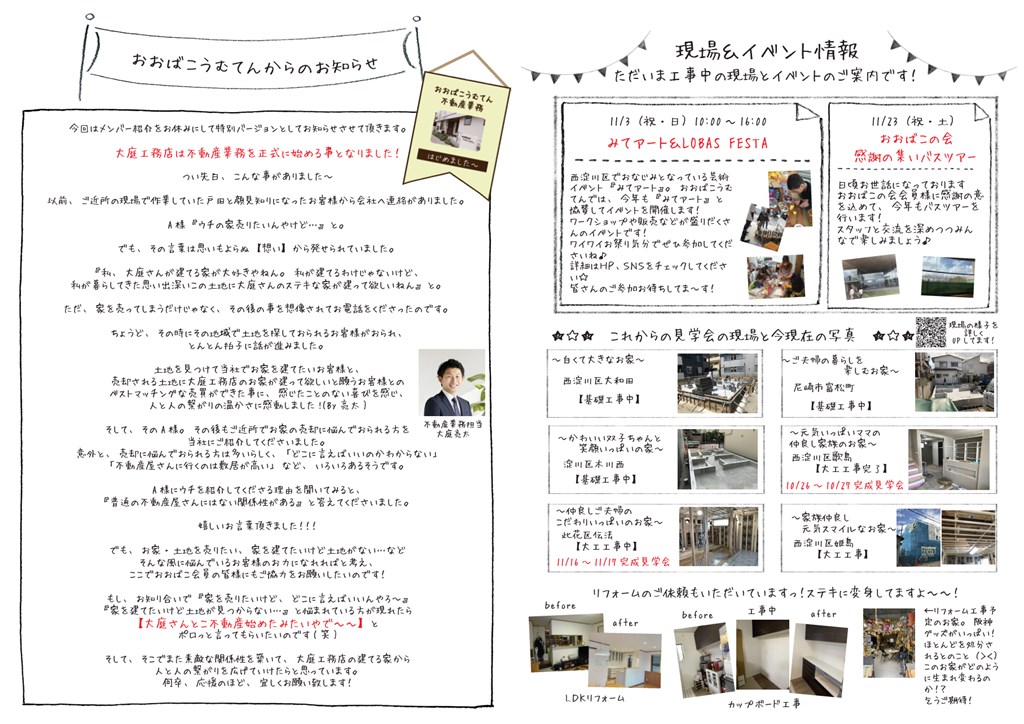 おおばこうむてんからのお知らせ
おおばこうむてん
不動産業務
はじめました～
今回はメンバー紹介をお休みにして特別バージョンとしてお知らせさせて頂きます。
大庭工務店は不動産業務を正式に始める事となりました！
つい先日、こんな事がありました～
以前、ご近所の現場で作業していた戸田と顔見知りになったお客様から会社へ連絡がありました。
A様『ウチの家売りたいんやけど…』と。
でも、その言葉は思いもよらぬ【想い】から発せられていました。
『私、大庭さんが建てる家が大好きやねん。私が建てるわけじゃないけど、
私が暮らしてきた思い出深いこの土地に大庭さんのステキな家が建って欲しいねん』と。
ただ、家を売ってしまうだけじゃなく、その後の事を想像されてお電話をくださったのです。
ちょうど、その時にその地域で土地を探しておられるお客様がおられ、
とんとん拍子に話が進みました。
土地を見つけて当社でお家を建てたいお客様と、
売却される土地に大庭工務店のお家が建って欲しいと願うお客様との
ベストマッチングな売買ができた事に、感じたことのない喜びを感じ、
人と人の繋がりの温かさに感動しました！(By 亮太)
不動産業務担当
大庭亮太
そして、そのA様。その後もご近所でお家の売却に悩んでおられる方を
当社にご紹介してくださいました。
意外と、売却に悩んでおられる方は多いらしく、「どこに言えばいいのかわからない」
「不動産屋さんに行くのは敷居が高い」など、いろいろあるそうです。
A様にウチを紹介してくださる理由を聞いてみると、
『普通の不動産屋さんにはない関係性がある』と答えてくださいました。
嬉しいお言葉頂きました！！！
でも、お家・土地を売りたい、家を建てたいけど土地がない…など
そんな風に悩んでいるお客様のお力になれればと考え、
ここでおおばこ会員の皆様にもご協力をお願いしたいのです！
もし、お知り合いで『家を売りたいけど、どこに言えばいいんやろ～』
『家を建てたいけど土地が見つからない…』と悩まれている方が現れたら
【大庭さんとこ不動産始めたみたいやで～～】と
ポロっと言ってもらいたいのです(笑)
そして、そこでまた素敵な関係性を築いて、大庭工務店の建てる家から
人と人の繋がりを広げていけたらと思っています。
何卒、応援のほど、宜しくお願い致します！
現場＆イベント情報
ただいま工事中の現場とイベントのご案内です！
11/3（祝・日）10:00～16:00
みてアート&LOBAS FESTA
西淀川区でおなじみとなっている芸術
イベント『みてアート』。おおばこうむ
てんでは、今年も『みてアート』と
協賛してイベントを開催します！
ワークショップや販売などが盛りだくさ
んのイベントです！
ワイワイお祭り気分でぜひ参加してくだ
さいね♪
詳細はHP、SNSをチェックしてくださ
い☆
皆さんのご参加お待ちしてま～す！
11/23（祝・土）
おおばこの会
感謝の集いバスツアー
日頃お世話になっております
おおばこの会会員様に感謝の意
を込めて、今年もバスツアーを
行います！
スタッフと交流を深めつつみん
なで楽しみましょう♪
★☆★ これからの見学会の現場と今現在の写真 ★☆★
現場の様子を
詳しく
UPしてます！
～白くて大きなお家～
西淀川区大和田
【基礎工事中】
～ご夫婦の暮らしを
楽しむお家～
尼崎市富松町
【基礎工事中】
～かわいい双子ちゃんと
笑顔いっぱいの家～
淀川区木川西
【基礎工事中】
～元気いっぱいママの
仲良し家族のお家～
西淀川区歌島
【大工工事完了】
10/26～10/27完成見学会
～仲良しご夫婦の
こだわりいっぱいのお家～
此花区伝法
【大工工事中】
11/16～11/17完成見学会
～家族仲良し
元気スマイルなお家～
西淀川区姫島
【大工工事】
リフォームのご依頼もいただいていますっ！ステキに変身してますよ～～！
before
after
LDKリフォーム
before
工事中
after
カップボード工事
←リフォーム工事予
定のお家。阪神
グッズがいっぱい！
ほとんどを処分さ
れるとのこと（＞＜）
このお家がどのよう
に生まれ変わるの
か！？
乞うご期待！